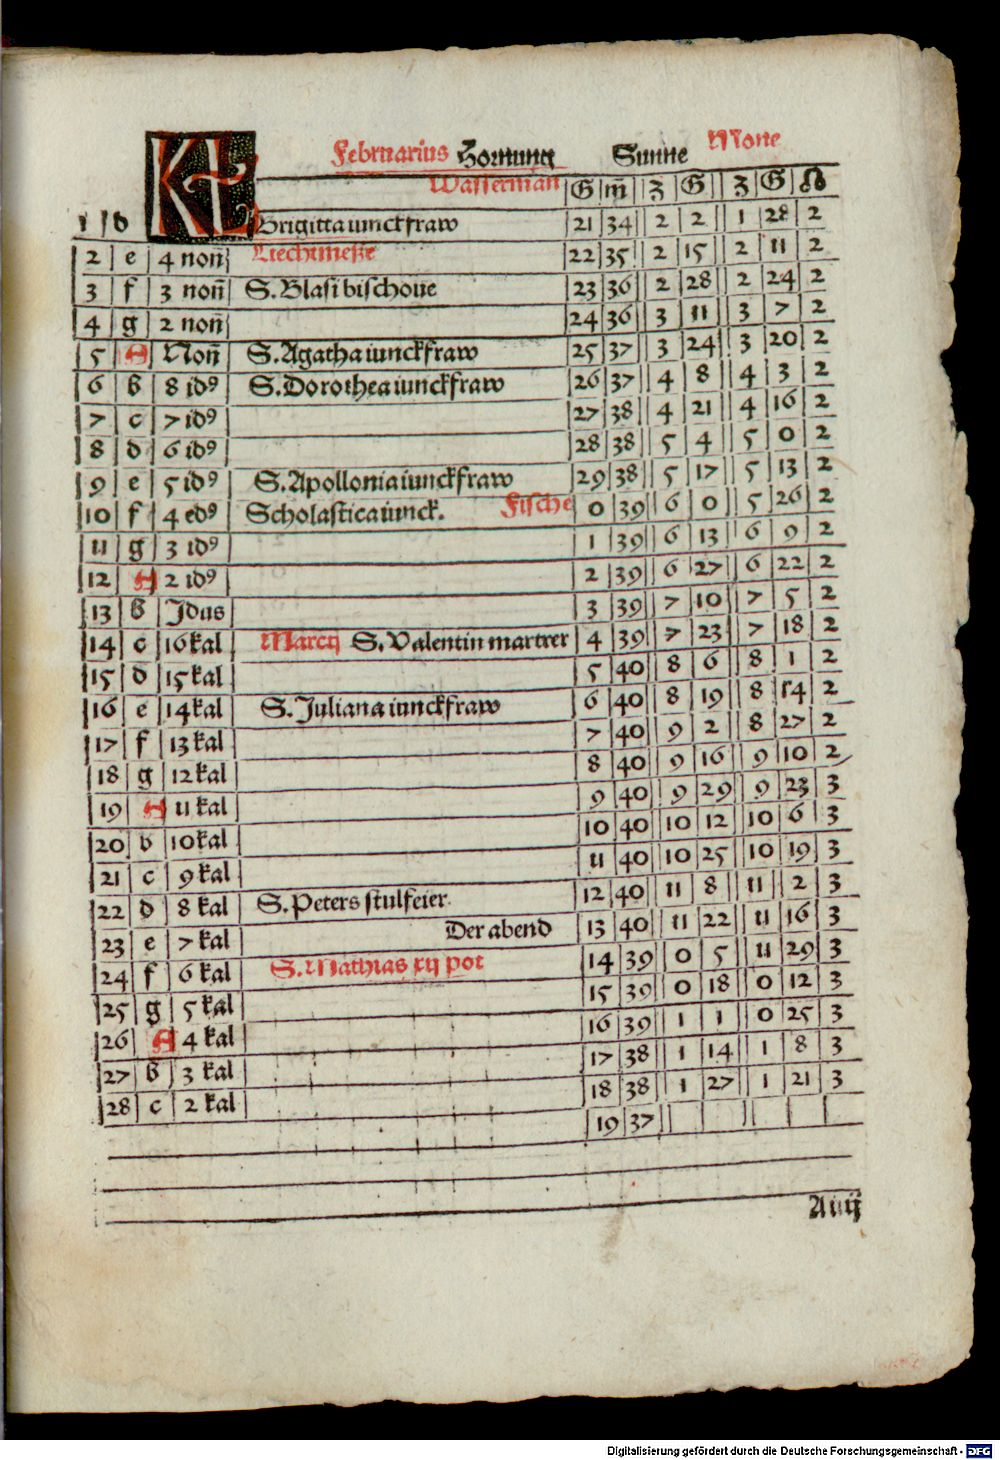 KL Februarius Hornung Sunne Mone
Wasserman G m̄ Z G Z G ☊
1 d Brigitta iunckfraw 21 34 2 2 1 28 2
2 e 4 non̄ Liechtmesse 22 35 2 15 2 11 2
3 f 3 non̄ S. Blasi bischoue 23 36 2 28 2 24 2
4 g 2 non̄ 24 36 3 11 3 7 2
5 A Non̄ S. Agatha iunckfraw 25 37 3 24 3 20 2
6 b 8 idꝰ S. Dorothea iunckfraw 26 37 4 8 4 3 2
7 c 7 idꝰ 27 38 4 21 4 16 2
8 d 6 idꝰ 28 38 5 4 5 0 2
9 e 5 idꝰ S. Apollonia iunckfraw 29 38 5 17 5 13 2
10 f 4 edꝰ Scholastica iunck. Fische 0 39 6 0 5 26 2
11 g 3 idꝰ 1 39 6 13 6 9 2
12 A 2 idꝰ 2 39 6 27 6 22 2
13 b Idus 3 39 7 10 7 5 2
14 c 16 kal Marcij S. Valentin martrer 4 39 7 23 7 18 2
15 d 15 kal 5 40 8 6 8 1 2
16 e 14 kal S. Juliana iunckfraw 6 40 8 19 8 14 2
17 f 13 kal 7 40 9 2 8 27 2
18 g 12 kal 8 40 9 16 9 10 2
19 A 11 kal 9 40 9 29 9 23 3
20 b 10 kal 10 40 10 12 10 6 3
21 c 9 kal 11 40 10 25 10 19 3
22 d 8 kal S. Peters stulfeier 12 40 11 8 11 2 3
23 e 7 kal Der abend 13 40 11 22 11 16 3
24 f 6 kal S. Mathias xij pot 14 39 0 5 11 29 3
25 g 5 kal 15 39 0 18 0 12 3
26 A 4 kal 16 39 1 1 0 25 3
27 b 3 kal 17 38 1 14 1 8 3
28 c 2 kal 18 38 1 27 1 21 3
19 37
A iiij
Digitalisierung gefördert durch die Deutsche Forschungsgemeinschaft - DFG